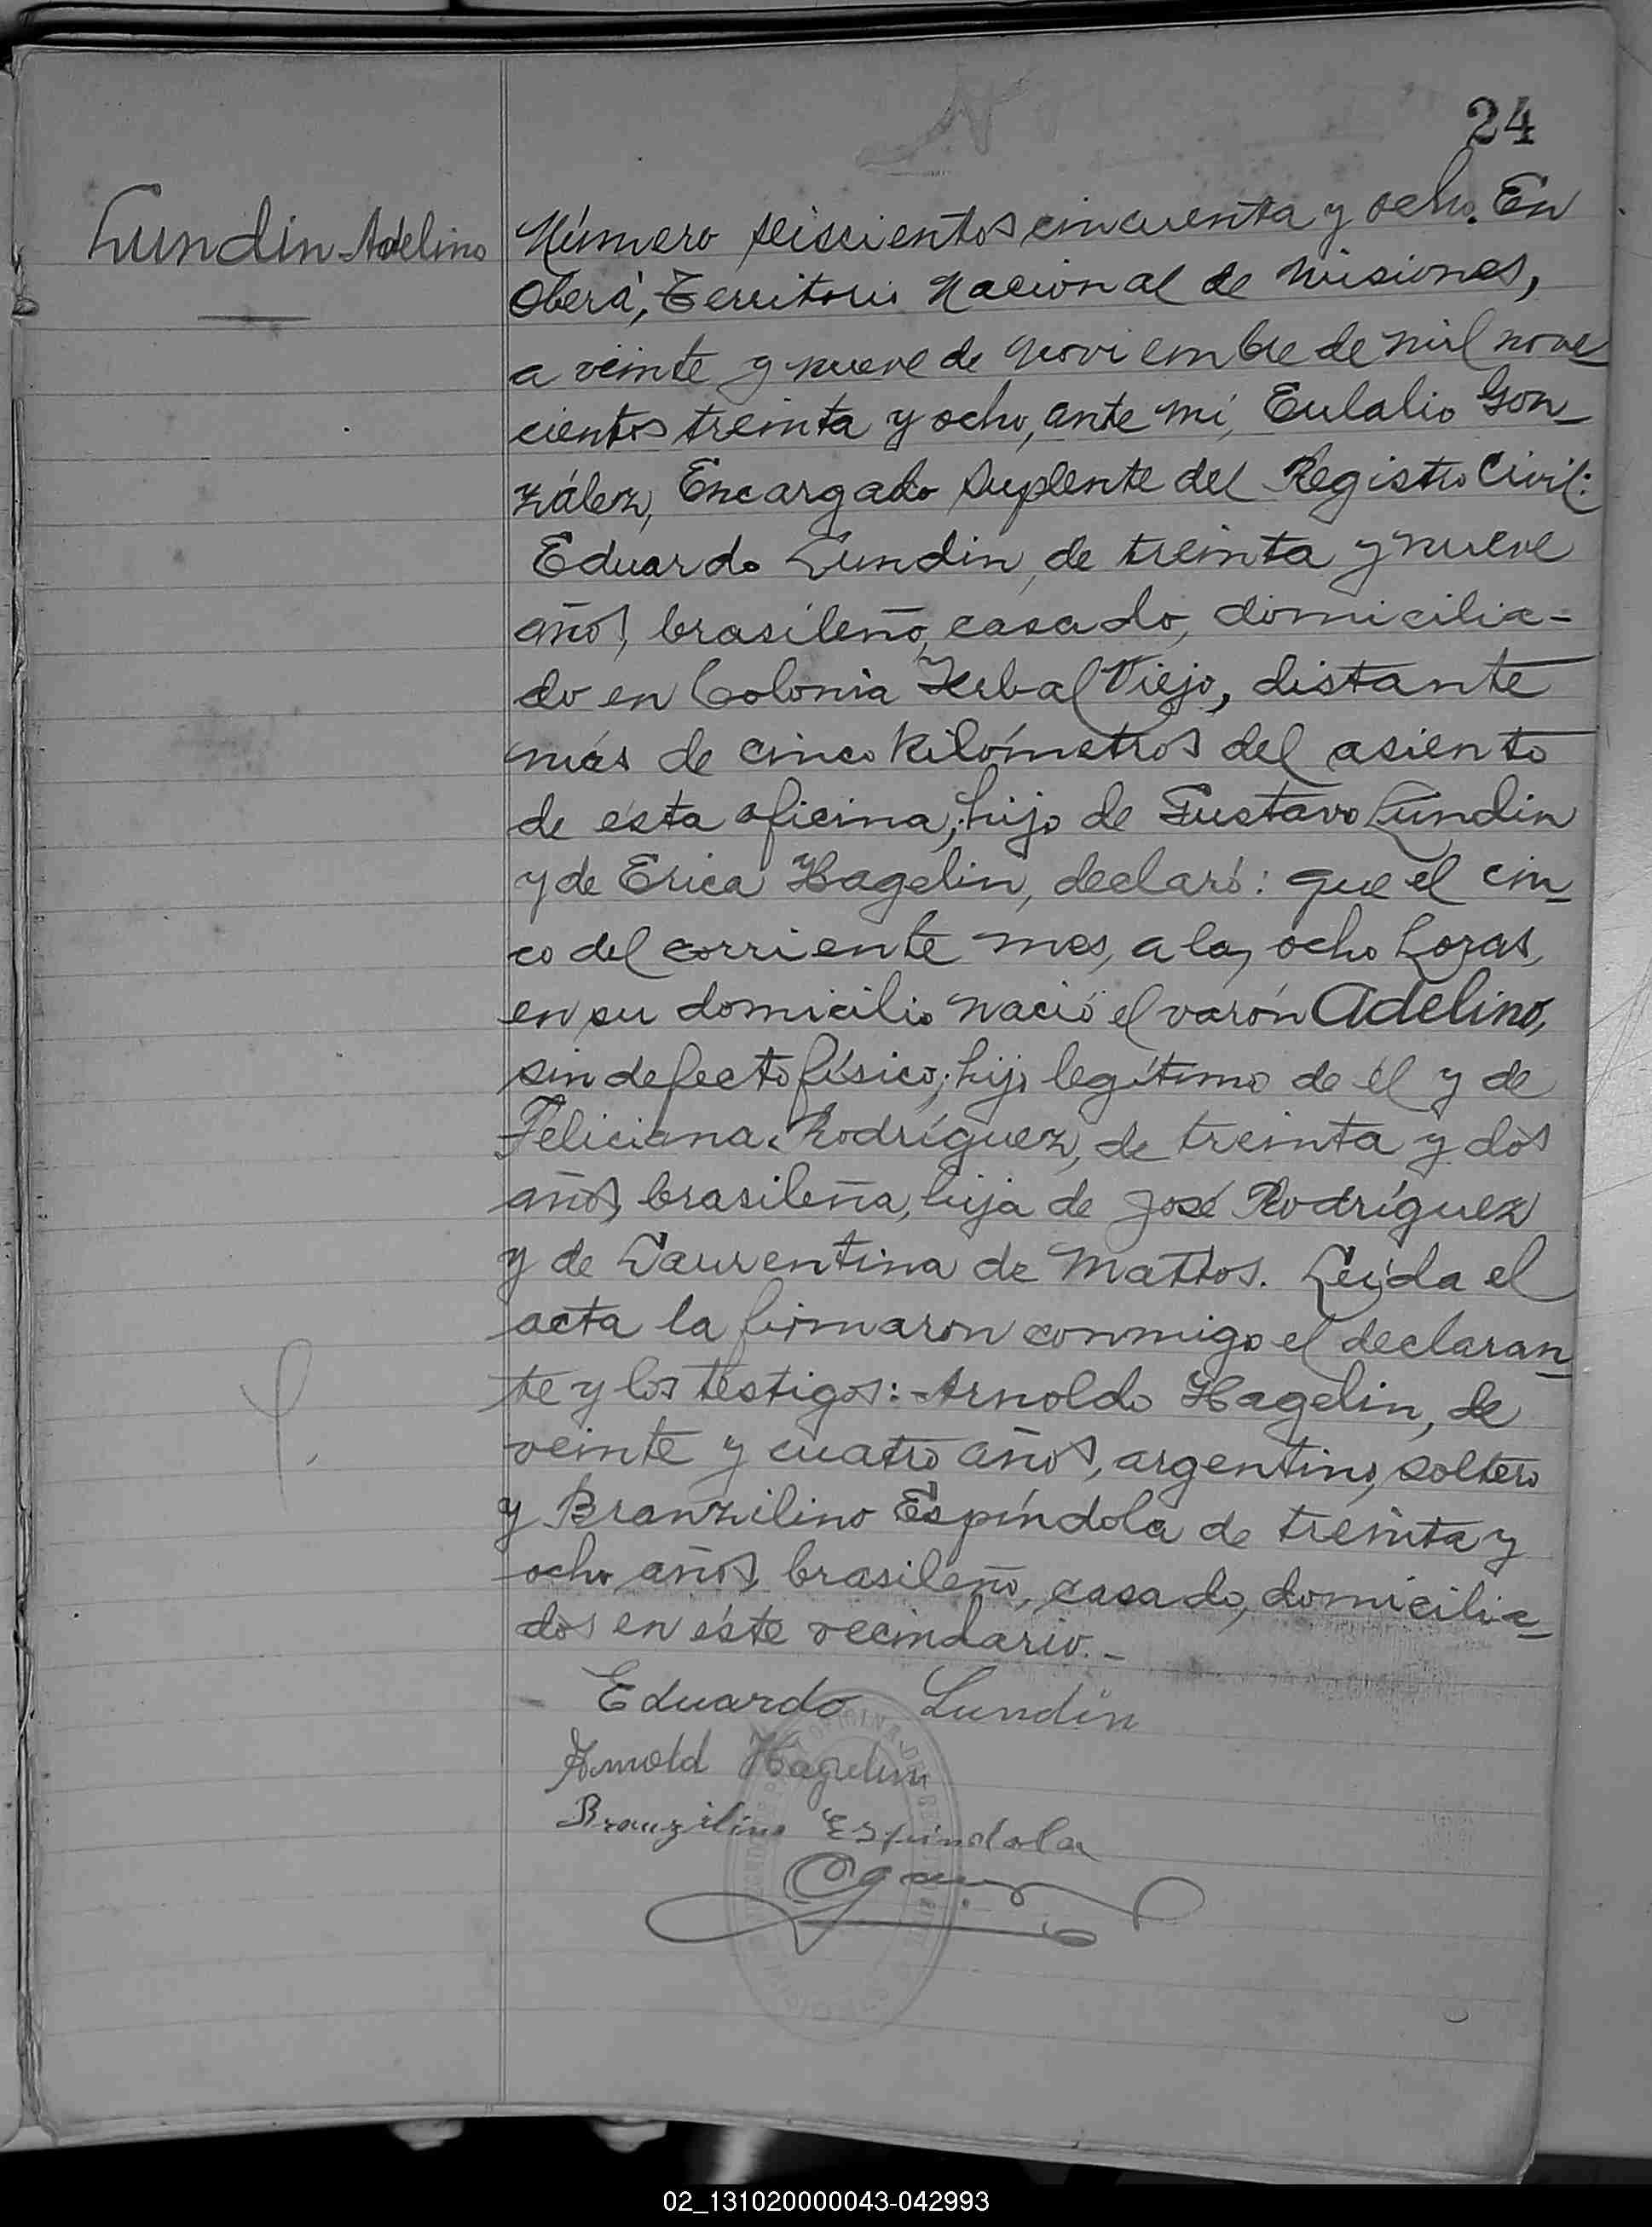 24
Lundin Adelino
Número seiscientos cincuenta y ocho. En
Oberá, Territorio Nacional de Misiones,
a veinte y nueve de noviembre de mil nove
cientos treinta y ocho, ante mí, Eulalio Gon-
zález, Encargado Suplente del Registro Civil:
Eduardo Lundin, de treinta y nueve
años, brasileño, casado, domicilia-
do en Colonia Yerbal Viejo, distante
más de cinco kilómetros del asiento
de ésta oficina; hijo de Gustavo Lundin
y de Erica Hagelin, declaró: que el cin-
co del corriente mes, a las ocho horas,
en su domicilio nació el varón Adelino,
sin defecto físico; hijo legítimo de él y de
Feliciana Rodríguez, de treinta y dos
años, brasileña, hija de José Rodríguez
y de Laurentina de Mattos. Leída el
acta la firmaron conmigo el declaran-
te y los testigos: Arnoldo Hagelin, de
veinte y cuatro años, argentino, soltero
y Branzilino Espíndola de treinta y
ocho años, brasileño, casado, domicilia-
dos en éste vecindario.-
Eduardo Lundin
Arnold Hagelin
Branzilino Espindola
02_131020000043-042993